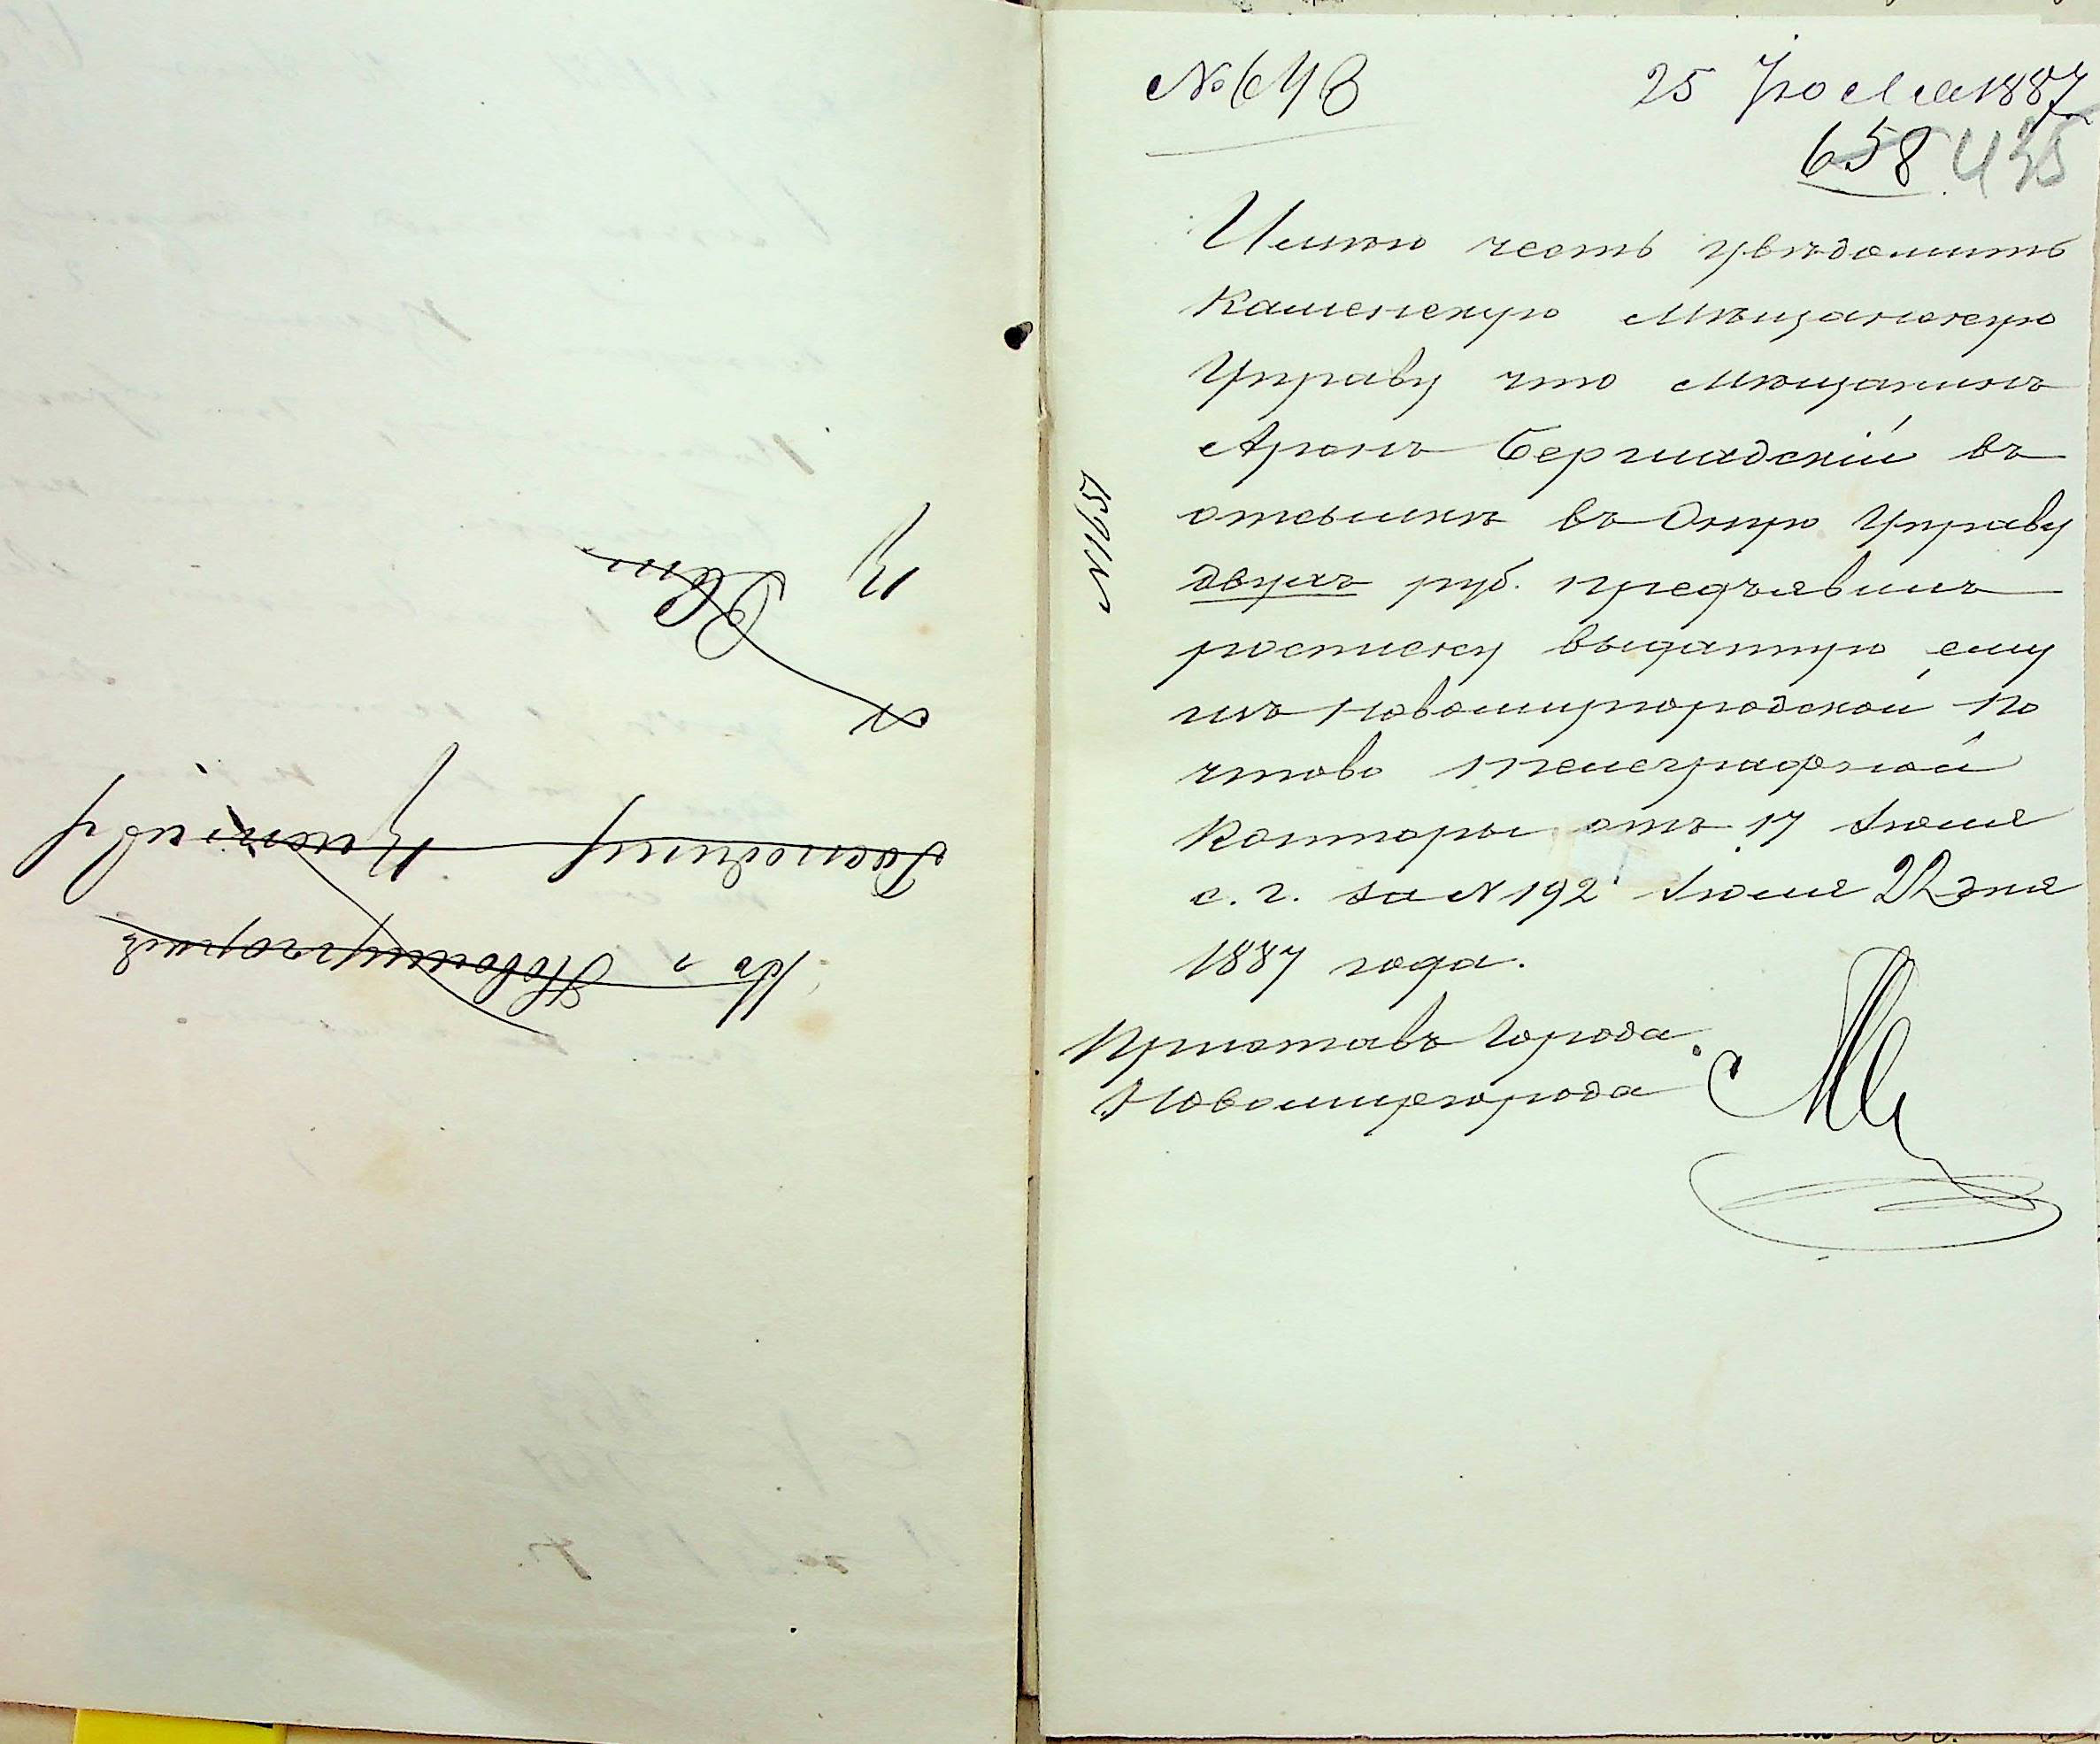 № 643
25 Июля 1887
658 435
Имѣю честь увѣдомить
Каменскую Мѣщанскую
Управу что мѣщанинъ
Аронъ Бершадскій въ
отсылкѣ въ Оную Управу
двухъ руб. предъявилъ
росписку выданную ему
изъ Новомиргородской По
чтово Телеграфной
Конторы отъ 17 Іюля
с. г. за N 192 Іюля 22 дня
1887 года.
Приставъ Города
Новомиргорода
N 1651
Въ г. Новомиргородъ
Господину Приставу